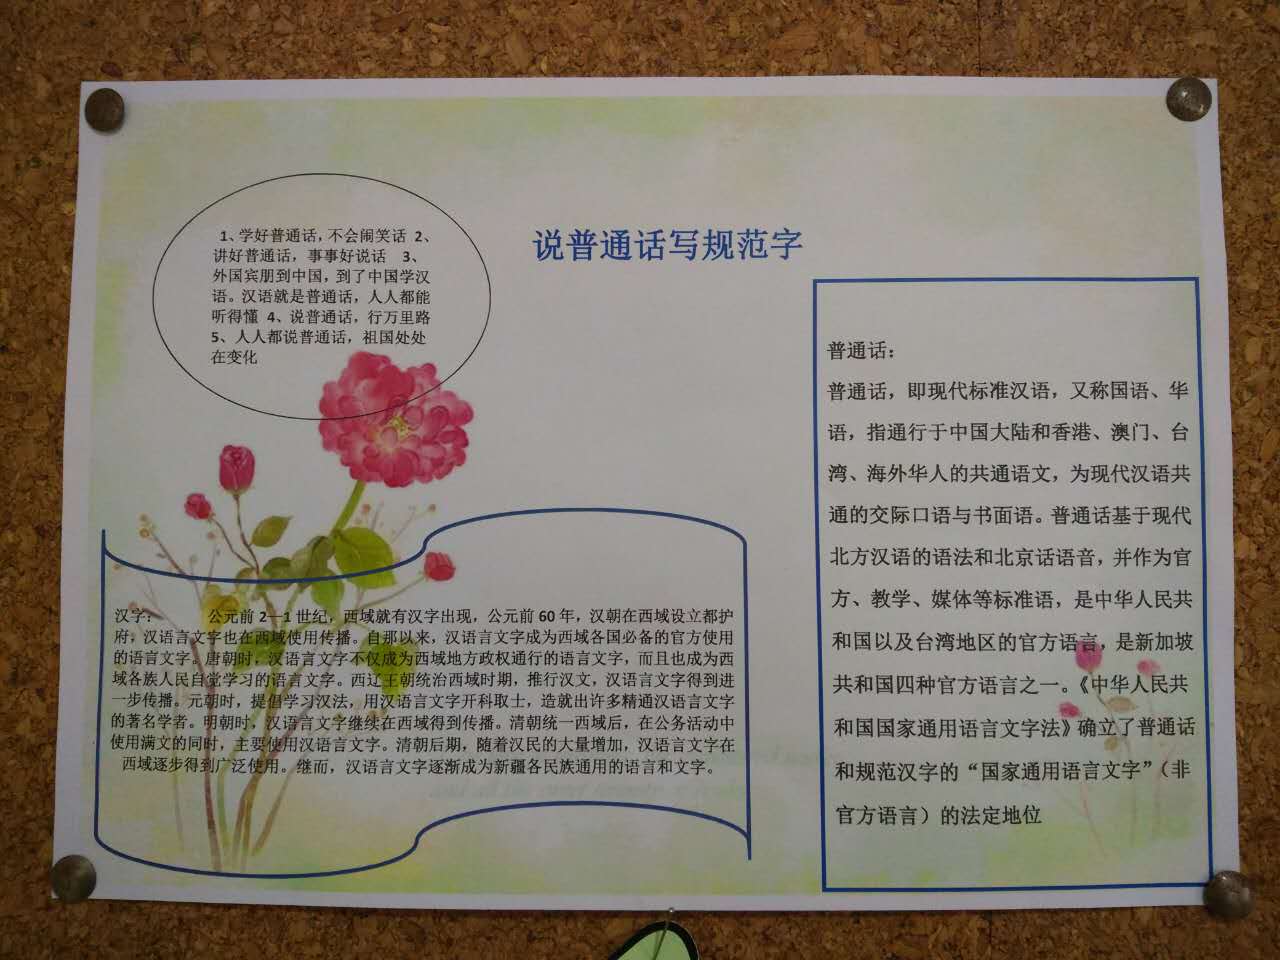 说普通话写规范字
1、学好普通话，不会闹笑话 2、
讲好普通话，事事好说话 3、
外国宾朋到中国，到了中国学汉
语。汉语就是普通话，人人都能
听得懂 4、说普通话，行万里路
5、人人都说普通话，祖国处处
在变化
汉字： 公元前2—1世纪，西域就有汉字出现，公元前60年，汉朝在西域设立都护
府，汉语言文字也在西域使用传播。自那以来，汉语言文字成为西域各国必备的官方使用
的语言文字。唐朝时，汉语言文字不仅成为西域地方政权通行的语言文字，而且也成为西
域各族人民自觉学习的语言文字。西辽王朝统治西域时期，推行汉文，汉语言文字得到进
一步传播。元朝时，提倡学习汉法，用汉语言文字开科取士，造就出许多精通汉语言文字
的著名学者。明朝时，汉语言文字继续在西域得到传播。清朝统一西域后，在公务活动中
使用满文的同时，主要使用汉语言文字。清朝后期，随着汉民的大量增加，汉语言文字在
西域逐步得到广泛使用。继而，汉语言文字逐渐成为新疆各民族通用的语言和文字。
普通话：
普通话，即现代标准汉语，又称国语、华
语，指通行于中国大陆和香港、澳门、台
湾、海外华人的共通语文，为现代汉语共
通的交际口语与书面语。普通话基于现代
北方汉语的语法和北京话语音，并作为官
方、教学、媒体等标准语，是中华人民共
和国以及台湾地区的官方语言，是新加坡
共和国四种官方语言之一。《中华人民共
和国国家通用语言文字法》确立了普通话
和规范汉字的“国家通用语言文字”（非
官方语言）的法定地位